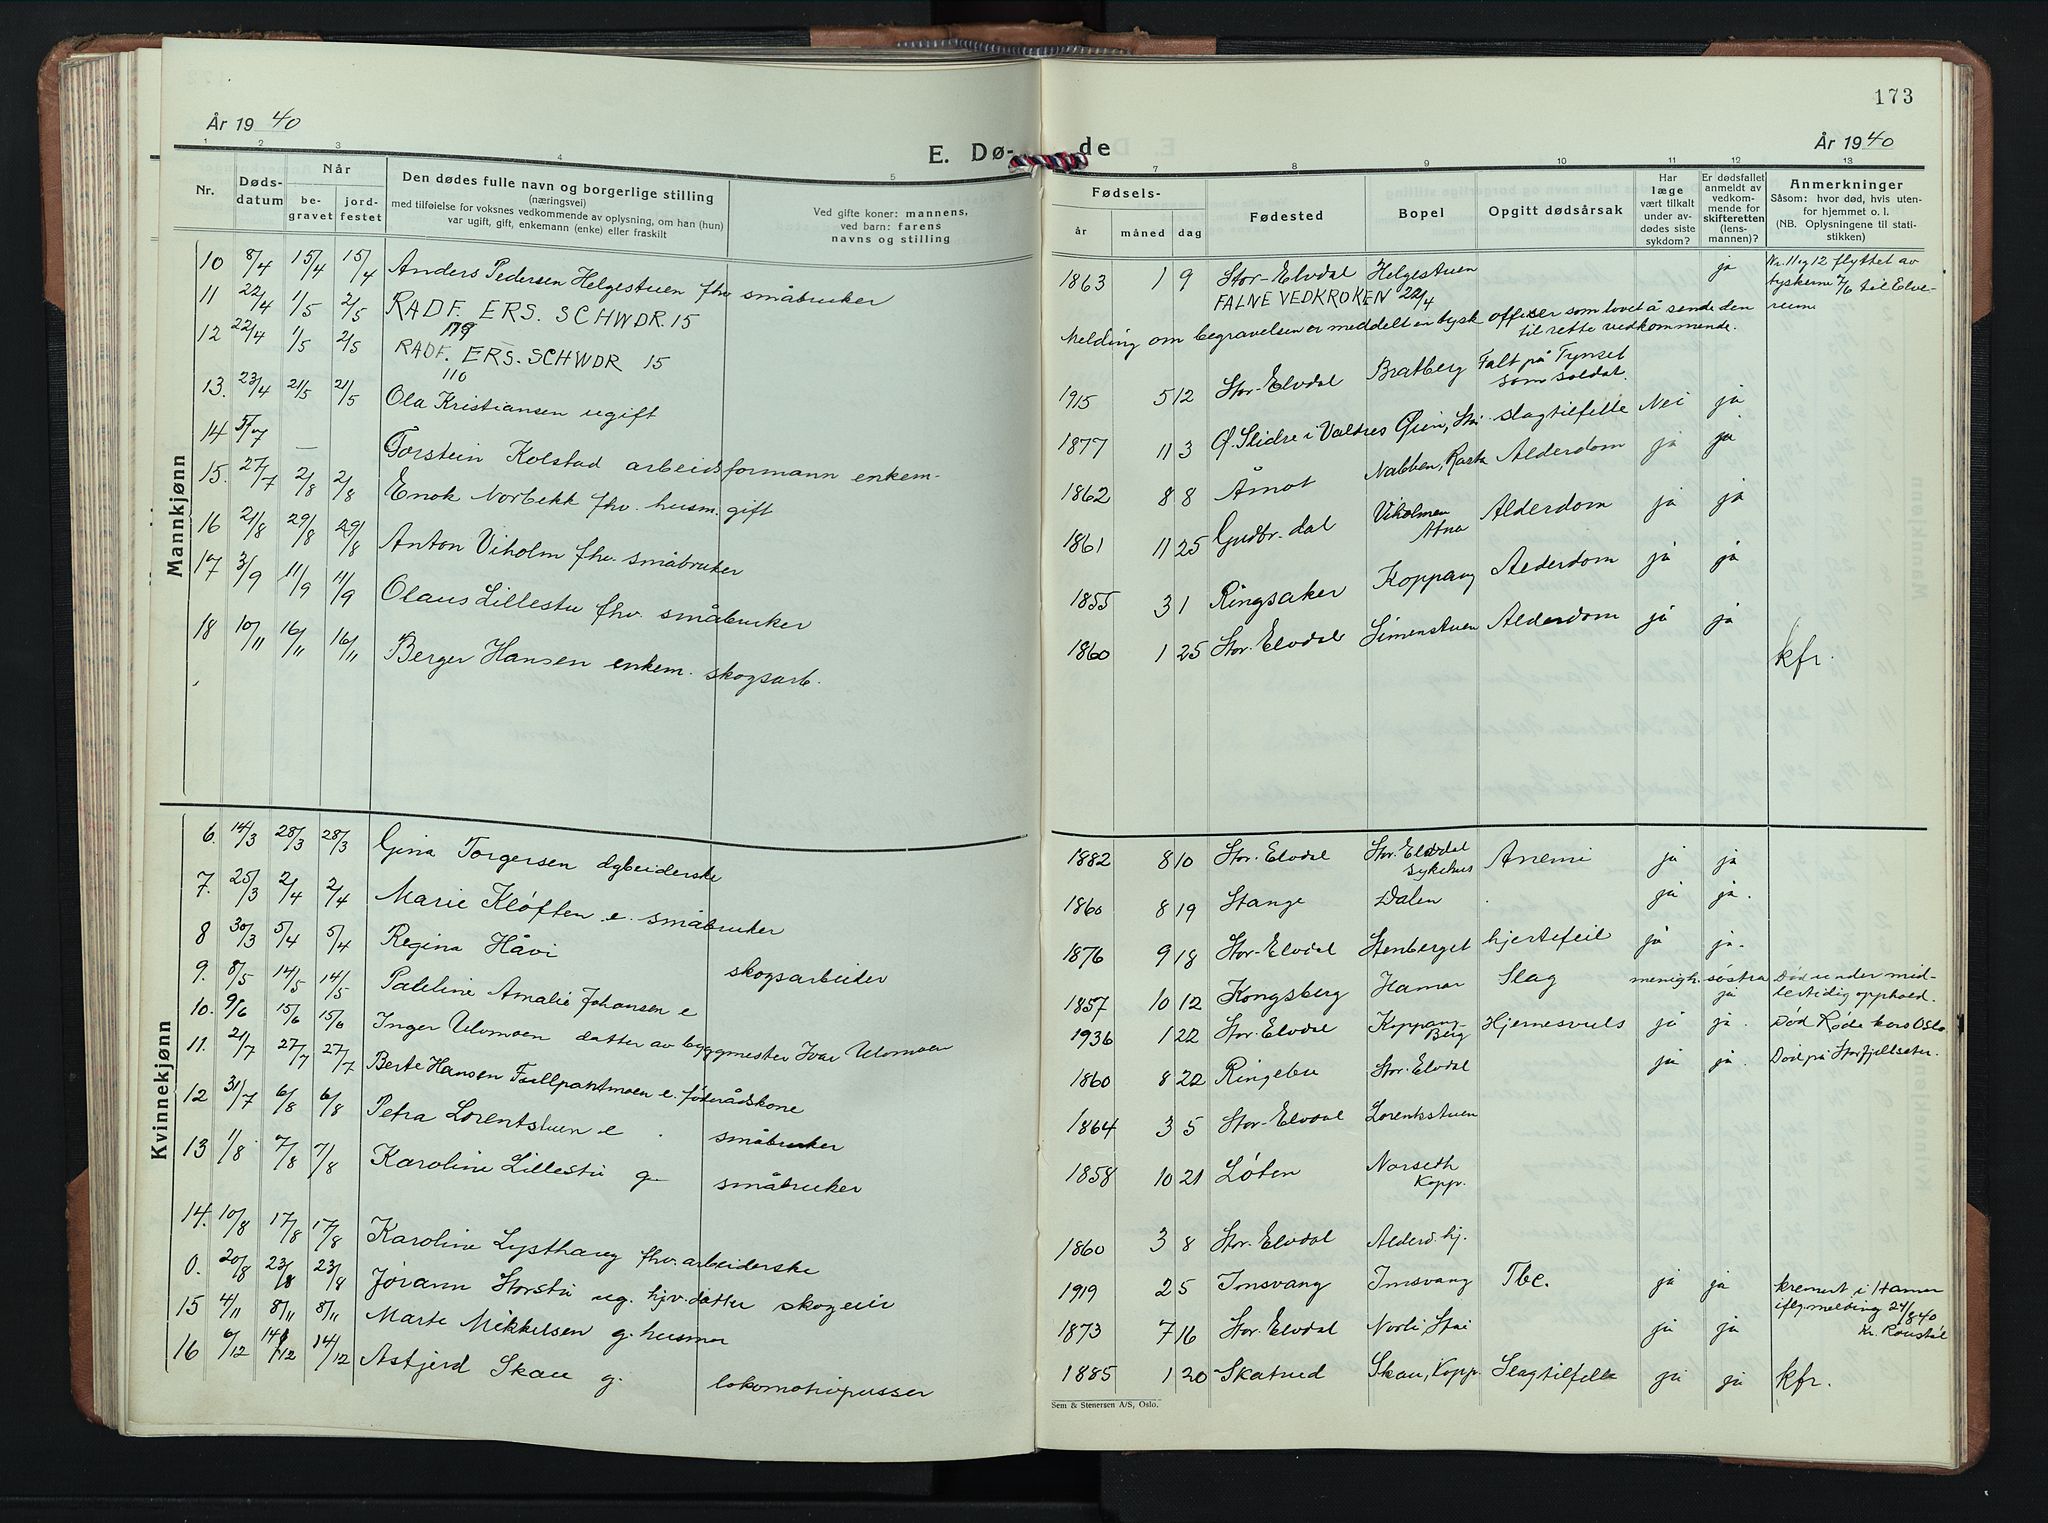 173
År 1940
E. Dø-
de
År 1940
1 2 3 4 5 7 8 9 10 11 12 13
Nr.
Døds-
datum
Når
be-
gravet
jord-
festet
Den dødes fulle navn og borgerlige stilling
(næringsvei)
med tilføielse for voksnes vedkommende av oplysning, om han (hun)
var ugift, gift, enkemann (enke) eller fraskilt
Ved gifte koner: mannens,
ved barn: farens
navns og stilling
Fødsels-
år måned dag
Fødested
Bopel
Opgitt dødsårsak
Har
læge
vært tilkalt
under av-
dødes siste
sykdom?
Er dødsfallet
anmeldt av
vedkom-
mende for
skifteretten
(lens-
mannen)?
Anmerkninger
Såsom: hvor død, hvis uten-
for hjemmet o. l.
(NB. Oplysningene til stati-
stikken)
Mannkjønn
10 8/4 15/4 15/4 Anders Pedersen Helgestuen fhv. småbruker 1863 1 9 Stor-Elvdal Helgestuen ja Nr. 11 og 12 flyttet av
tyskerne 7/6 til Elve-
rum
11 22/4 1/5 2/5 RADF. ERS. SCHWDR. 15
179
FALNE VED KROKEN 22/4
12 22/4 1/5 2/5 RADF. ERS. SCHWDR 15
110
Melding om begravelsen er meddelt en tysk offiser som lovet å sende den
til rette vedkommende.
13. 23/4 21/5 21/5 Ola Kristiansen ugift 1915 5 12 Stor-Elvdal Bratberg Falt på Tynset
som soldat.
ja
14 5/7 — Torstein Kolstad arbeidsformann enkem- 1877 11 3 Ø. Slidre i Valdres Øien, Stai slagtilfelle Nei ja
15. 27/7 2/8 2/8 Enok Norbekk fhv. husm. gift 1862 8 8 Åmot Nabben, Rasta Alderdom ja ja
16 21/8 29/8 29/8 Anton Viholm fhv. småbruker 1861 11 25 Gudbr. dal Viholmen
Atna
Alderdom ja ja
17 3/9 11/9 11/9 Olaus Lillestu fhv. småbruker 1855 3 1 Ringsaker Koppang Alderdom ja ja
18 10/11 16/11 16/11 Berger Hansen enkem. skogsarb. 1860 1 25 Stor-Elvdal Simenstuen Alderdom ja ja
kfr.
Kvinnekjønn
6. 14/3 28/3 28/3 Gina Torgersen arbeiderske 1882 8 10 Stor-Elvdal Stor-Elvdal
sykehus
Anemi ja ja
7. 25/3 2/4 2/4 Marie Kløften e. småbruker 1860 8 19 Stange Dalen ja ja.
8 30/3 5/4 5/4 Regina Håvi skogsarbeider 1876 9 18 Stor-Elvdal Stenberget hjertefeil ja ja.
9. 8/5 14/5 14/5 Pauline Amalie Johansen e 1857 10 12 Kongsberg Hamar Slag menigh. søstra
ja
Død under mid-
lertidig opphold.
10. 9/6 15/6 15/6 Inger Ulvmoen datter av byggmester Ivar Ulvmoen 1936 1 22 Stor-Elvdal Koppang-
Berg
Hjernesvuls ja ja. Død Røde kors Oslo
11. 21/7 27/7 27/7 Berte Hansen Fullpaktmoen e. føderådskone 1860 8 22 Ringebu Stor-Elvdal ja ja. Død på Storfjellseter.
12 31/7 6/8 6/8 Petra Lorentstuen e. småbruker 1864 3 5 Stor-Elvdal Lorentstuen
13 1/8 7/8 7/8 Karoline Lillestu g- småbruker 1858 10 21 Løten Norseth
Kopp.
14. 10/8 17/8 17/8 Karoline Lysthaug fhv. arbeiderske 1860 3 8 Stor-Elvdal Alderd. hj.
0. 20/8 23/8 23/8 Jørann Storstu ug. hjv. datter skogeier 1919 2 5 Imsvang Imsvang Tbc. ja ja kremert i Hamar
iflg. melding 24/8 40
Kr. Ronstøl
15 4/11 8/11 8/11 Marte Mikkelsen g. husmor 1873 7 16 Stor-Elvdal Norli, Stai ja ja
16 6/12 14/12 14/12 Astjerd Skau g. lokomotivpusser 1885 1 20 Skatnud Skau, Kopp. Slagtilfelle ja ja kfr.
Sem & Stenersen A/S, Oslo.